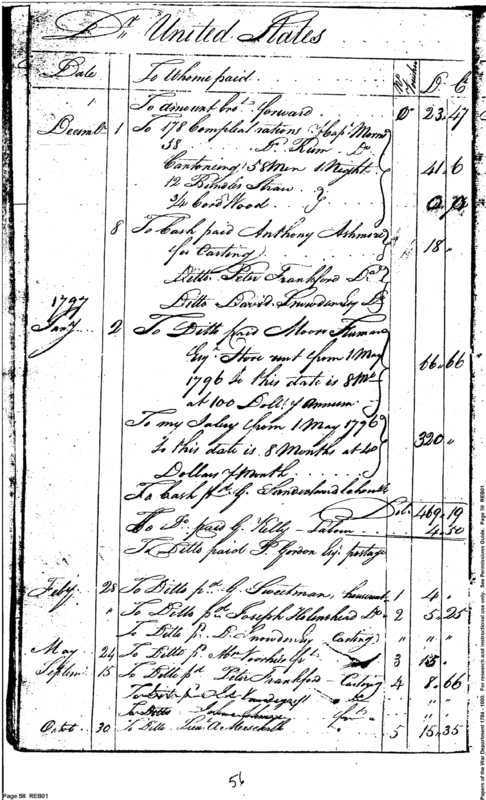 Dr. United States
Date To Whome paid No Voucher D. C
To amount brot. forward D 23.47
Decembr 1 To 178 Compleat rations Capt. Morris
58 Do. Rum Do
Cantoning 58 Men 1 Night 41.6
12 Bundles Straw
3/4 Cord Wood
8 To Cash paid Anthony Ashmore
for Carting 18 "
Ditto Peter Frankford Do
Ditto David Snowden
1797
Jany 2 To Ditto paid Moore Furman
Esqr. Store rent from 1 May
1796 to this date is 8 Mos 66.66
at 100 Dolls. Annum
To my Salary from 1 May 1796
to this date is 8 Months at 40 320 "
Dollars Month
To Cash pd. G. Sunderland
Dol. 469.19
To Do. paid G. Kelly - 4.50
To Ditto paid P. Gordon Esq. postage
Feby 28 To Ditto pd. G. Sweetman, 1 4 "
" To Ditto pd. Joseph Holmshied Do 2 5.25
To Ditto p. D. Snowden Carting " " "
May 24 To Ditto p. 3 15 "
Septem. 15 To Ditto pd. Peter Frankford - Carting 4 8.66
To Ditto
To Ditto
Octob. 30 To Ditto Lieut. A. Marschalk 5 15.35
56
Page 58 REB01
Papers of the War Department 1784 - 1800. For research and instructional use only. See Permissions Guide. Page 58 REB01